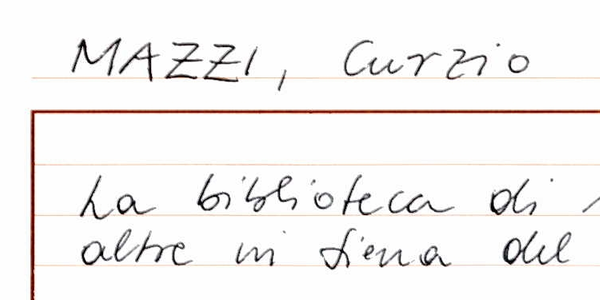 MAZZI, Curzio
La biblioteca di
altre in Siena del